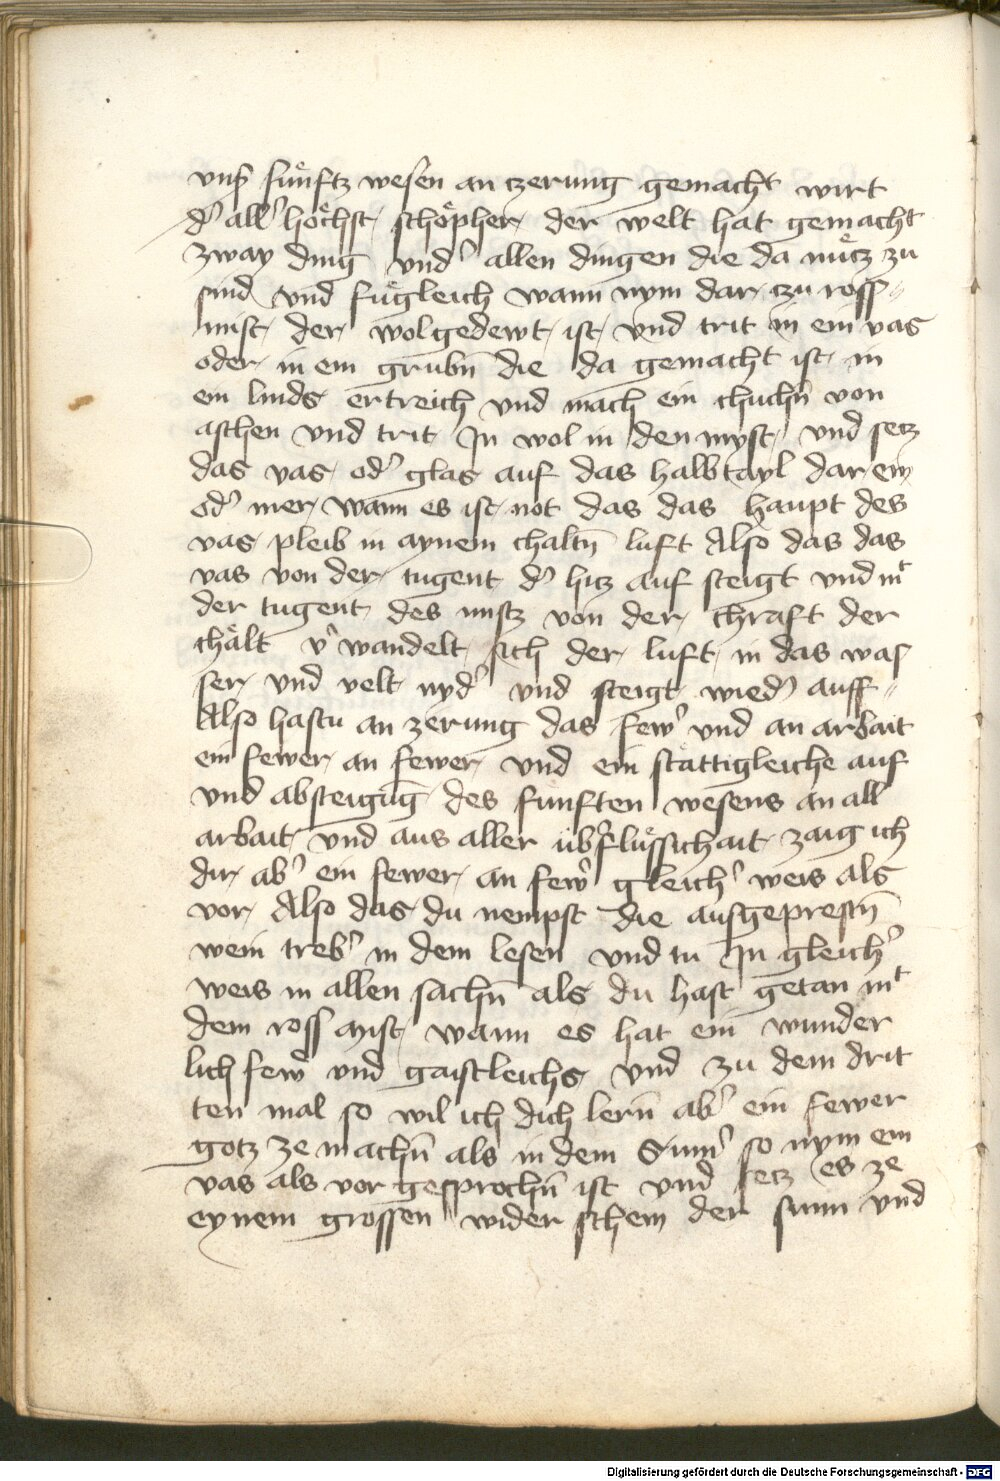 vnsˀ fuͤnftz wesen an tzerung gemacht wirt
dˀ allˀ hoͤchst schoͤpher der welt hat gemacht
zway ding vndˀ allen dingen die da nuͤtz zu
sind vnd fuͤgleich wann nym dar zu ross⸗
mist der wolgedewt ist vnd trit in ein vas
oder in ein grubn̄ die da gemacht ist in
ein linds ertreich vnd mach ein chuchn̄ von
aschen vnd trit In wol in den myst vnd setz
das vas odˀ glas auf das halbtayl dar ein
odˀ mer wann es ist not das das haupt des
vas pleib in aynem chaltn̄ luft Also das das
vas von der tugent dˀ hitz auf steigt vnd mͭ
der tugent des mistz von der chraft der
chaͤlt vˀwandelt sich der luft in das was
ser vnd velt nydˀ vnd steigt wiedˀ auff⸗
Also hastu an zerung das fewˀ vnd an arbait
ein fewer an fewer vnd ein staͤttigleiche auf
vnd absteigūg des funften wesens an all
arbait vnd aus aller uͤbˀfluͤssichait zaig ich
dir abˀ ein fewer an fewˀ gleichˀ weis als
vor Also das du nempst die ausgeprestn̄
wein trebˀ in dem lesen vnd tu In gleichˀ
weis in allen sachn̄ als du hast getan mͭ
dem ross mist wann es hat ein wunder
lich fewˀ vnd gaistleichs vnd zu dem drit
ten mal so wil ich dich lern̄ abˀ ein fewer
gotz ze machn̄ als in dem Sumˀ so nym ein
vas als vor gesprochn̄ ist vnd setz es ze
eynem grossen wider schein der sunn vnd
Digitalisierung gefördert durch die Deutsche Forschungsgemeinschaft - DFG